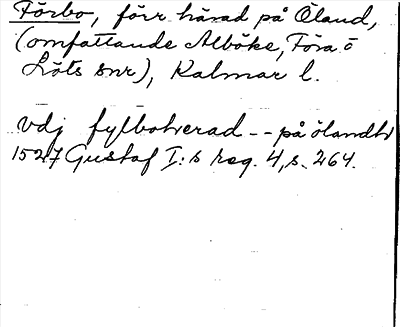 Förbo, förr härad på Öland,
(omfattande Alböke, Föra o
Löts snr), Kalmar l.
vdj fylbohverad -- på ölandh
1527 Gustaf I:s reg. 4, s. 264.